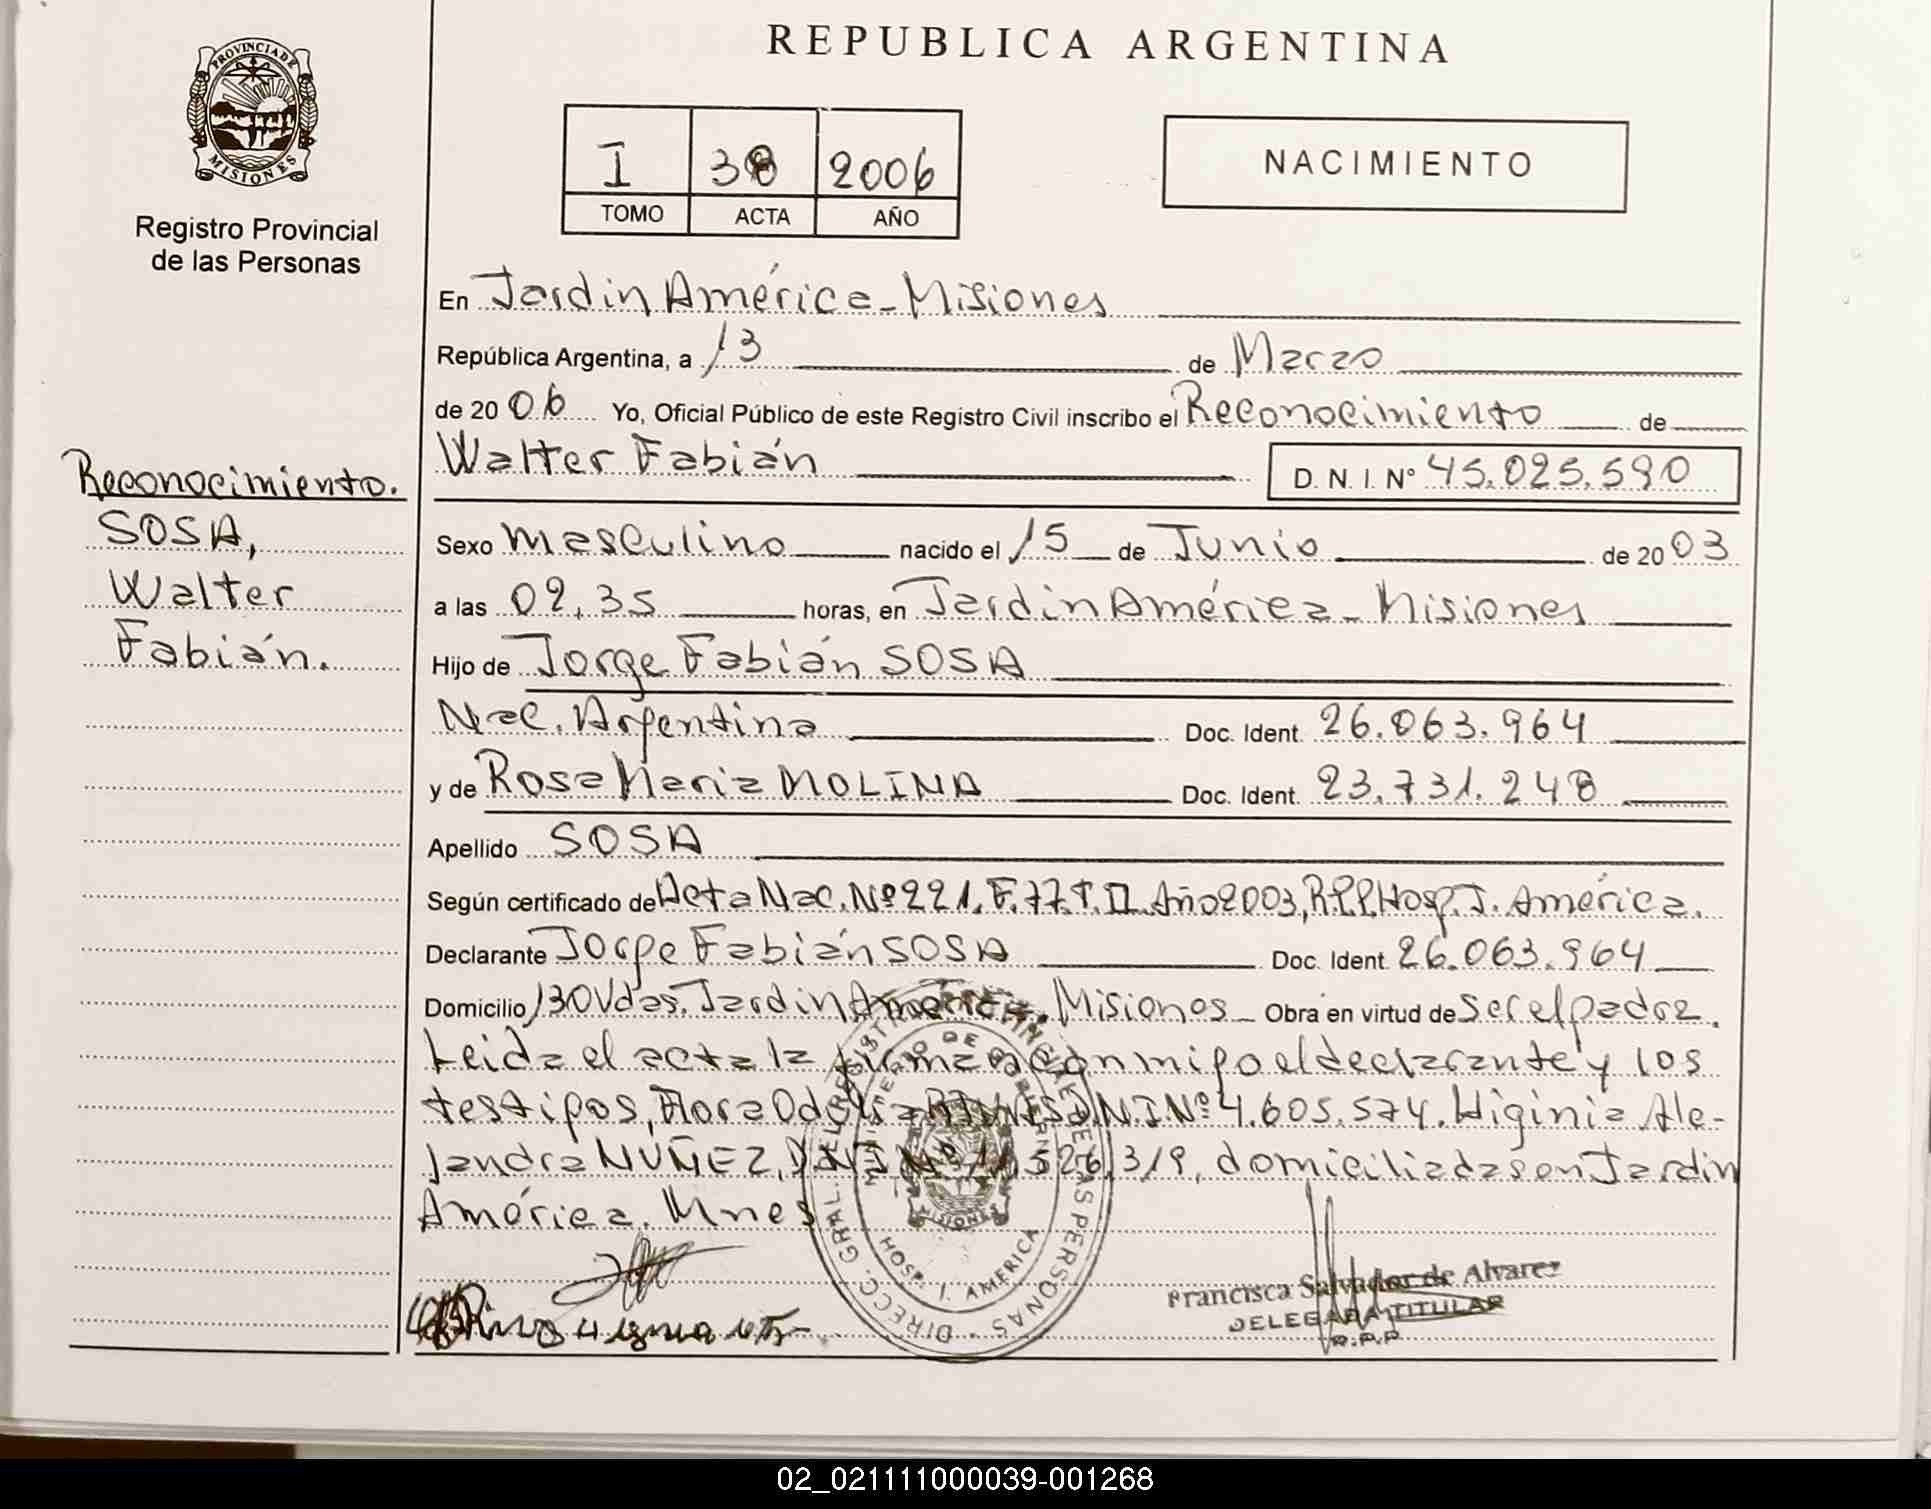 PROVINCIA DE
MISIONES
Registro Provincial
de las Personas
Reconocimiento.
SOSA,
Walter
Fabián.
REPUBLICA ARGENTINA
I 38 2006
TOMO ACTA AÑO
NACIMIENTO
En Jardin América - Misiones
República Argentina, a 13 de Marzo
de 20 06 Yo, Oficial Público de este Registro Civil inscribo el Reconocimiento de
Walter Fabián D. N. I. Nº 45.025.590
Sexo Masculino nacido el 15 de Junio de 20 03
a las 02,35 horas, en Jardin América - Misiones
Hijo de Jorge Fabián SOSA
Nac. Argentina Doc. Ident. 26.063.964
y de Rosa Maria MOLINA Doc. Ident. 23.731.248
Apellido SOSA
Según certificado de Acta Nac. Nº 221, F. 77 T. II Año 2003, R.P.P. Hosp. J. América.
Declarante Jorge Fabián SOSA Doc. Ident. 26.063.964
Domicilio 130 Vdas. Jardin América. Misiones - Obra en virtud de ser el padre.
Leida el acta la firman conmigo el declarante y los
testigos, Flora Odulia D.N.I Nº 4.605.574. Higinia Ale-
jandra NÚÑEZ, D.N.I. Nº 11.526.319, domiciliadas en Jardin
América. Mnes
DIRECC. GRAL. DEL REGISTRO PROVINCIAL DE LAS PERSONAS
MINISTERIO DE GOBIERNO
MISIONES
HOSP. J. AMERICA
Francisca Salvador de Alvarez
DELEGADA TITULAR
R.P.P.
02_021111000039-001268